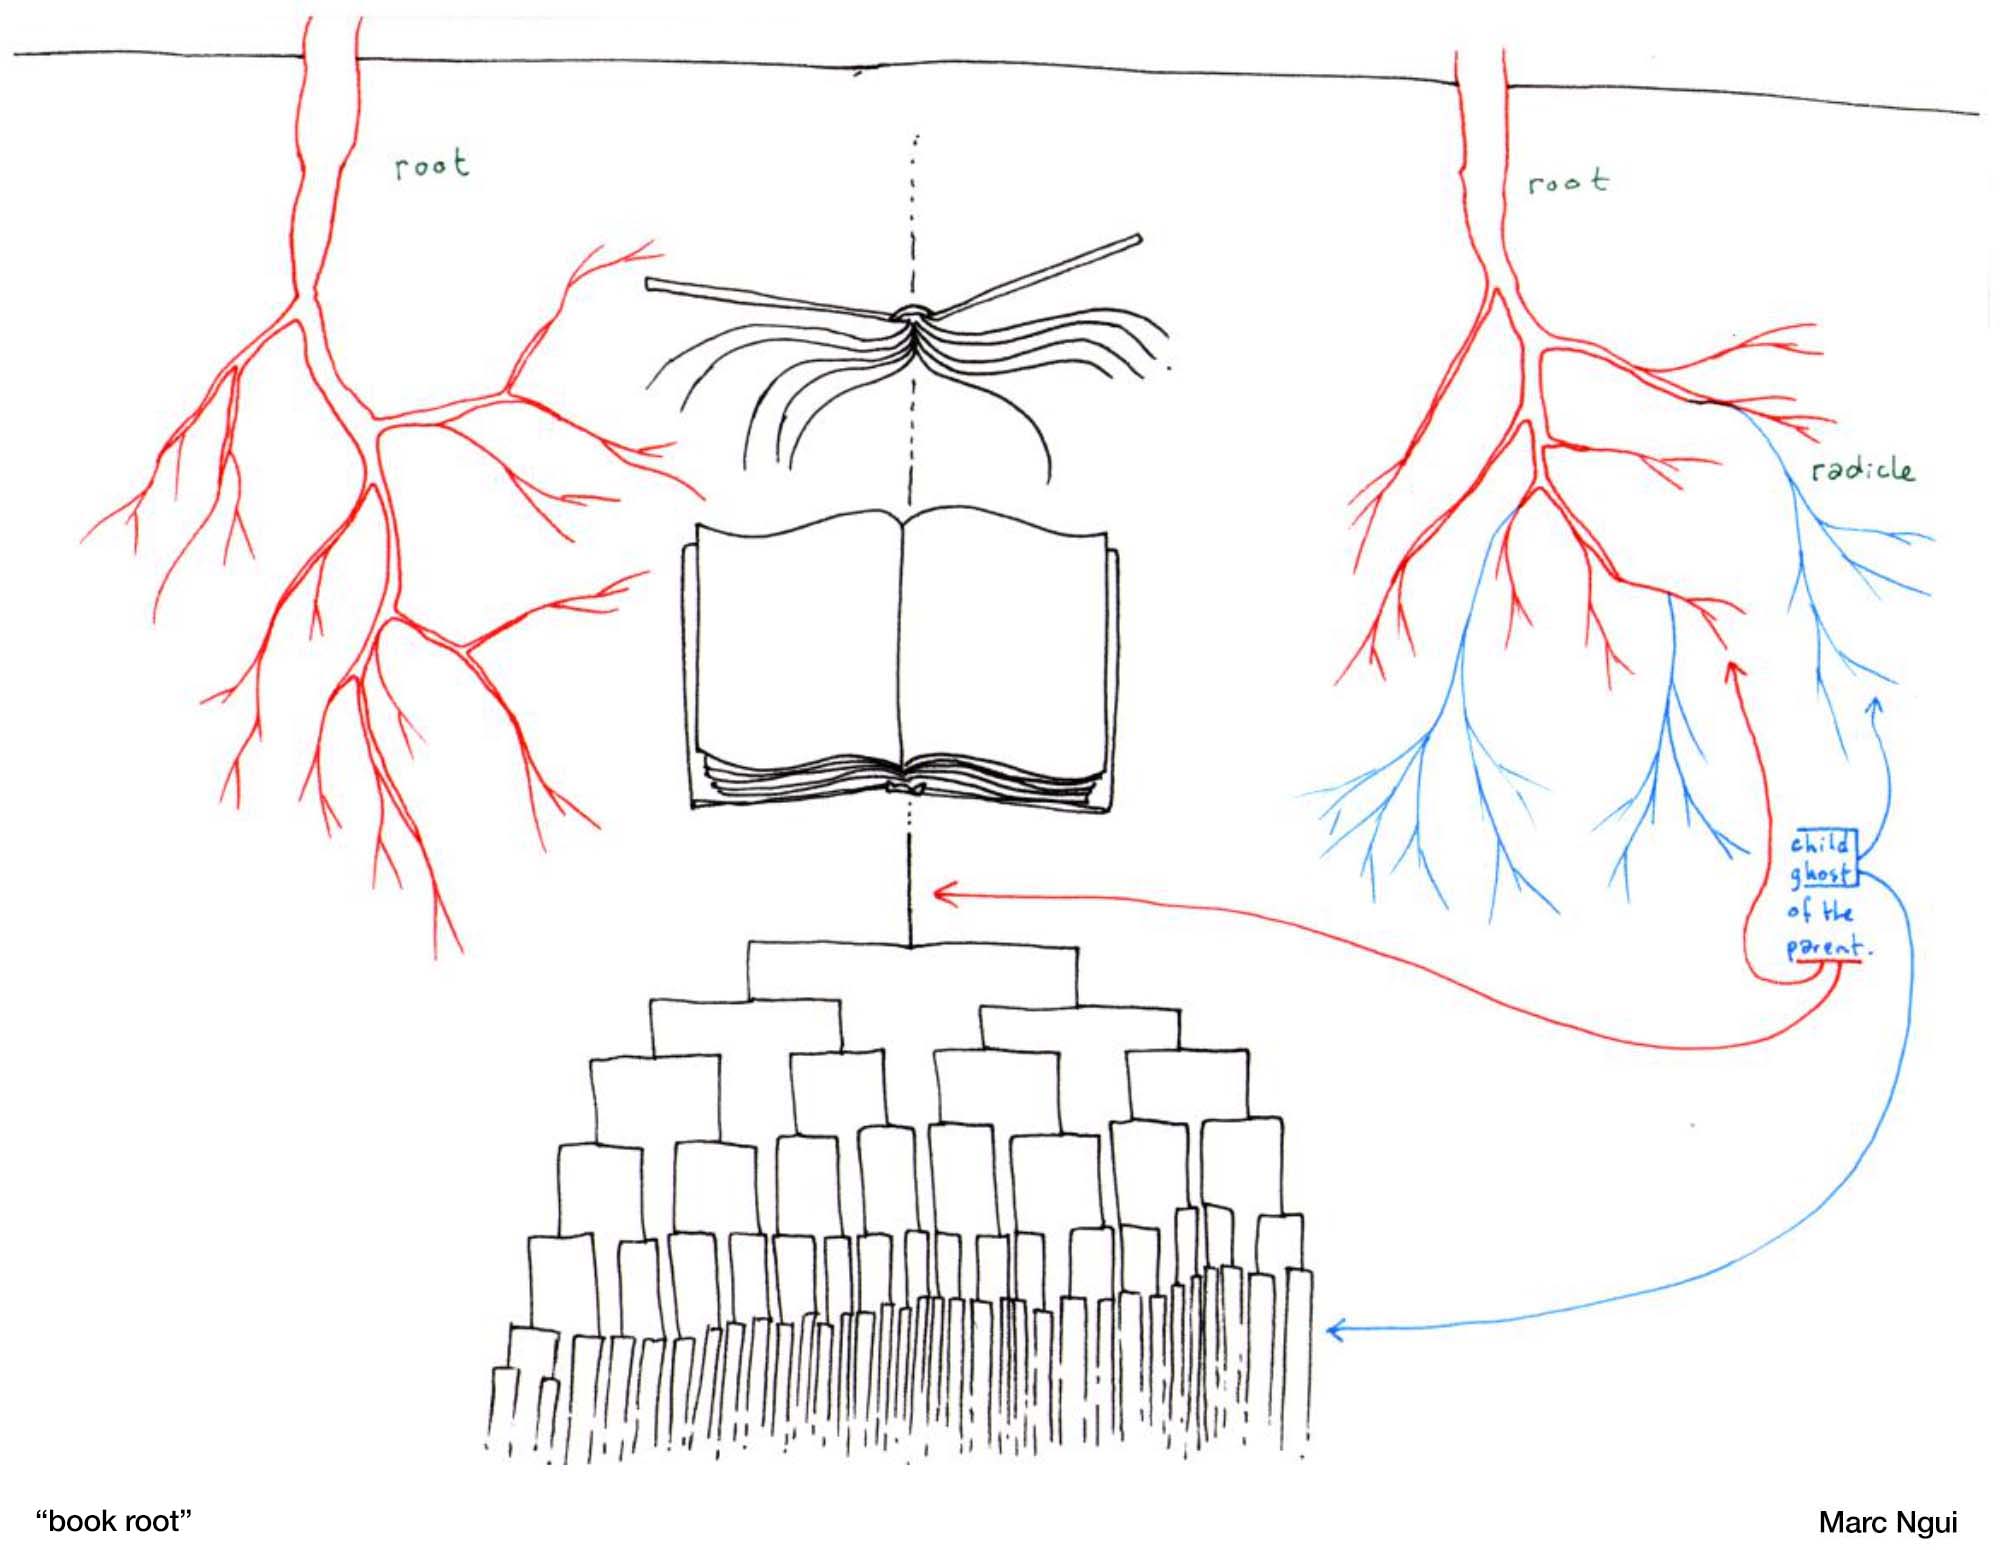 root
root
radicle
child
ghost
of the
parent.
“book root”
Marc Ngui